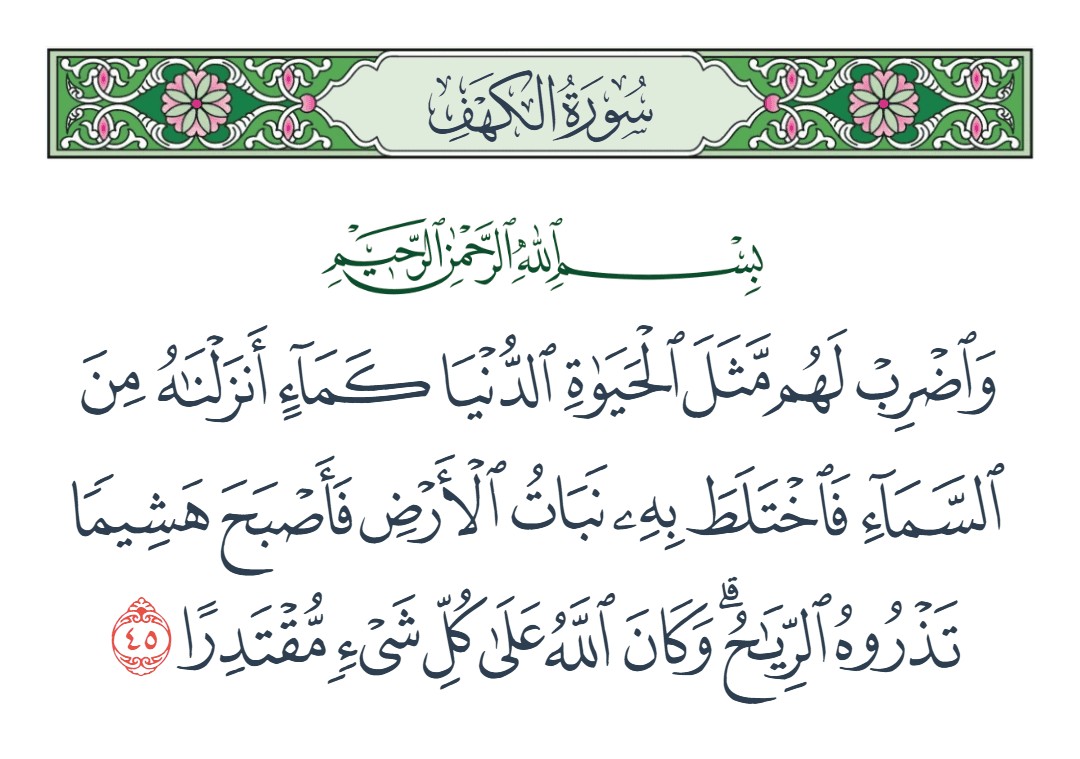 سُورَةُ الكَهْفِ
بِسْمِ ٱللَّهِ ٱلرَّحْمَٰنِ ٱلرَّحِيمِ
وَٱضْرِبْ لَهُم مَّثَلَ ٱلْحَيَوٰةِ ٱلدُّنْيَا كَمَآءٍ أَنزَلْنَٰهُ مِنَ
ٱلسَّمَآءِ فَٱخْتَلَطَ بِهِۦ نَبَاتُ ٱلْأَرْضِ فَأَصْبَحَ هَشِيمًا
تَذْرُوهُ ٱلرِّيَٰحُ ۗ وَكَانَ ٱللَّهُ عَلَىٰ كُلِّ شَىْءٍ مُّقْتَدِرًا ٤٥